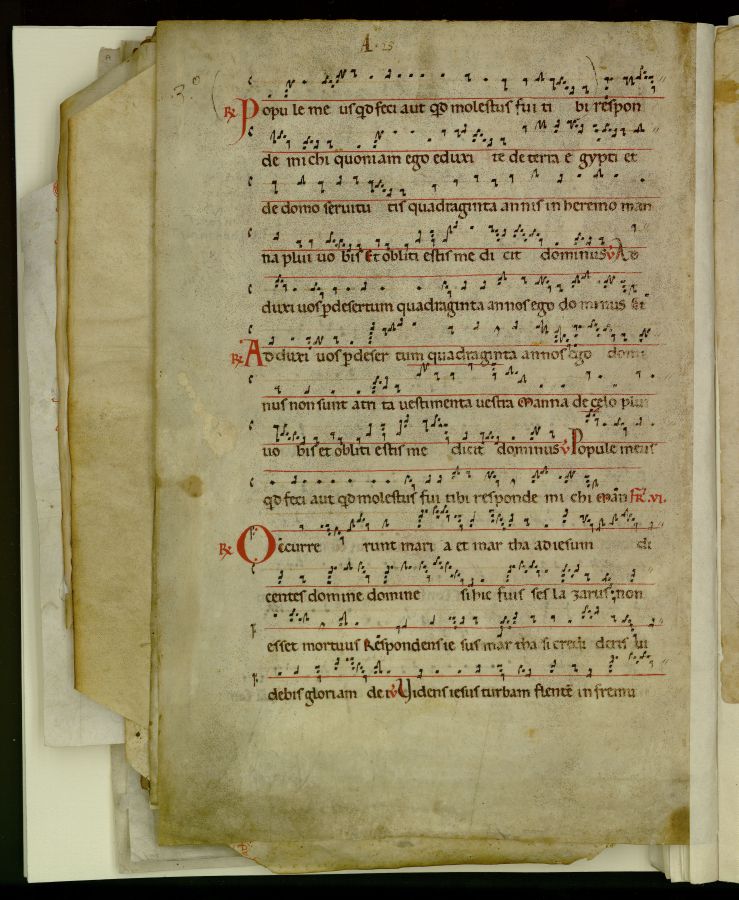 A · 25
3.º
℞ Popu le me us qd feci aut qd molestus fui ti bi respon
de michi quoniam ego eduxi te de terra e gypti et
de domo seruitu tis quadraginta annis in heremo man
na plui uo bis Et obliti estis me di cit dominus ℣ Ad
duxi uos p desertum quadraginta annos ego do minus et
℞ Ad duxi uos p deser tum quadraginta annos ego domi
nus non sunt atri ta uestimenta uestra Manna de celo plui
uo bis et obliti estis me dicit dominus ℣ Popule meus
qd feci aut qd molestus fui tibi responde mi chi Man FR. VI.
℞ Occurre runt mari a et mar tha ad iesum di
centes domine domine si hic fuis ses la zarus non
esset mortuus Respondens ie sus mar tha si credi deris ui
debis gloriam de i ℣ Videns iesus turbam flentē infremu